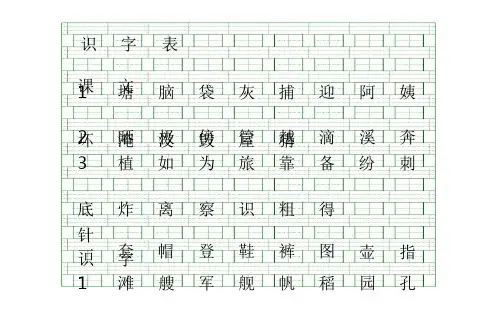 识 字 表
课 文
1 塘 脑 袋 灰 捕 迎 阿 姨
2 越 滴 溪 奔
坏 淹 没 毁 屋
3 植 如 为 旅 靠 备 纷 刺
底 炸 离 察 识 粗 得
针
套 帽 登 鞋 裤 图 壶 指
识 字
1 滩 艘 军 舰 帆 稻 园 孔